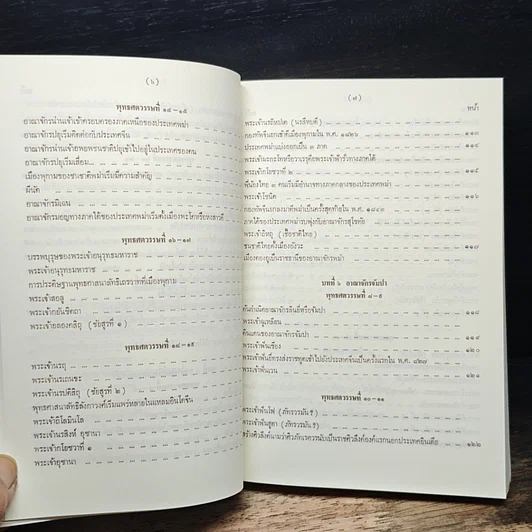 (๖)
พุทธศตวรรษที่ ๑๔ - ๑๕
อาณาจักรน่านเจ้าเข้าครอบครองภาคเหนือของประเทศพม่า
อาณาจักรปยุเริ่มติดต่อกับประเทศจีน
อาณาจักรน่านเจ้าอพยพชนชาติปยูเข้าไปอยู่ในประเทศของตน
อาณาจักรปยุเริ่มเสื่อม
เมืองพุกามของชนชาติพม่าเริ่มมีความสำคัญ
มีนัค
อาณาจักรมิเฉน
อาณาจักรมอญทางภาคใต้ของประเทศพม่าเริ่มตั้งเมืองพะโคหรือหงสาวดี
พุทธศตวรรษที่ ๑๖ - ๑๗
บรรพบุรุษของพระเจ้าอนุรุทธมหาราช
พระเจ้าอนุรุทธมหาราช
การประดิษฐานพุทธศาสนาลัทธิเถรวาทที่เมืองพุกาม
พระเจ้าสอลู
พระเจ้ากยันซิตถา
พระเจ้าอลองคสิถุ (ชัยสูรที่ ๑)
พุทธศตวรรษที่ ๑๘ - ๑๙
พระเจ้านรถุ
พระเจ้านรเถนขะ
พระเจ้านรปติสิถุ (ชัยสูรที่ ๒)
พุทธศาสนาลัทธิลังกาวงศ์เริ่มแพร่หลายในแหลมอินโดจีน
พระเจ้าติโลมินโล
พระเจ้านรสิงห์ อุซานา
พระเจ้ากโยชวาที่ ๑
พระเจ้าอุซานา
(๗)
หน้า
พระเจ้านรถิหปเต (นรสีหบดี)
กองทัพจีนยกเข้าตีเมืองพุกามใน พ.ศ. ๑๘๒๖ ๑๑๔
ประเทศพม่าแบ่งออกเป็น ๓ ภาค
พระเจ้ามะกะโทหรือวาเรรุคือพระเจ้าฟ้ารั่วทางภาคใต้
พระเจ้ากโยชวาที่ ๒ ๑๑๕
พี่น้องไทย ๓ คนเริ่มมีอำนาจทางภาคกลางของประเทศพม่า
พระเจ้าโซนิต ๑๑๖
กองทัพจีนยกลงมาตีพม่าเป็นครั้งสุดท้ายใน พ.ศ. ๑๘๔๓
ภาคใต้ของประเทศพม่ารบพุ่งกับอาณาจักรสุโขทัย
พระเจ้าถิหถุ (เชื้อชาติไทย)
ชนชาติไทยตั้งเมืองอังวะ ๑๑๗
เมืองตองอูเป็นราชธานีของอาณาจักรพม่า
บทที่ ๖ อาณาจักรจัมปา
พุทธศตวรรษที่ ๘ - ๙
ต้นกำเนิดอาณาจักรลินยี่หรือจัมปา ๑๑๘
พระเจ้าฉูเหลียน
ดินแดนของอาณาจักรจัมปา ๑๑๙
พระเจ้าฟันซอง ๑๒๐
พระเจ้าฟันยี่ทรงส่งราชทูตเข้าไปยังประเทศจีนเป็นครั้งแรกใน พ.ศ. ๘๒๗
พระเจ้าฟันเวน ๑๒๑
พุทธศตวรรษที่ ๑๐ - ๑๑
พระเจ้าฟันโฟ (ภัทรวรมันร์)
พระเจ้าฟันฮูตา (ภัทรวรมันร์)
๑๒๒